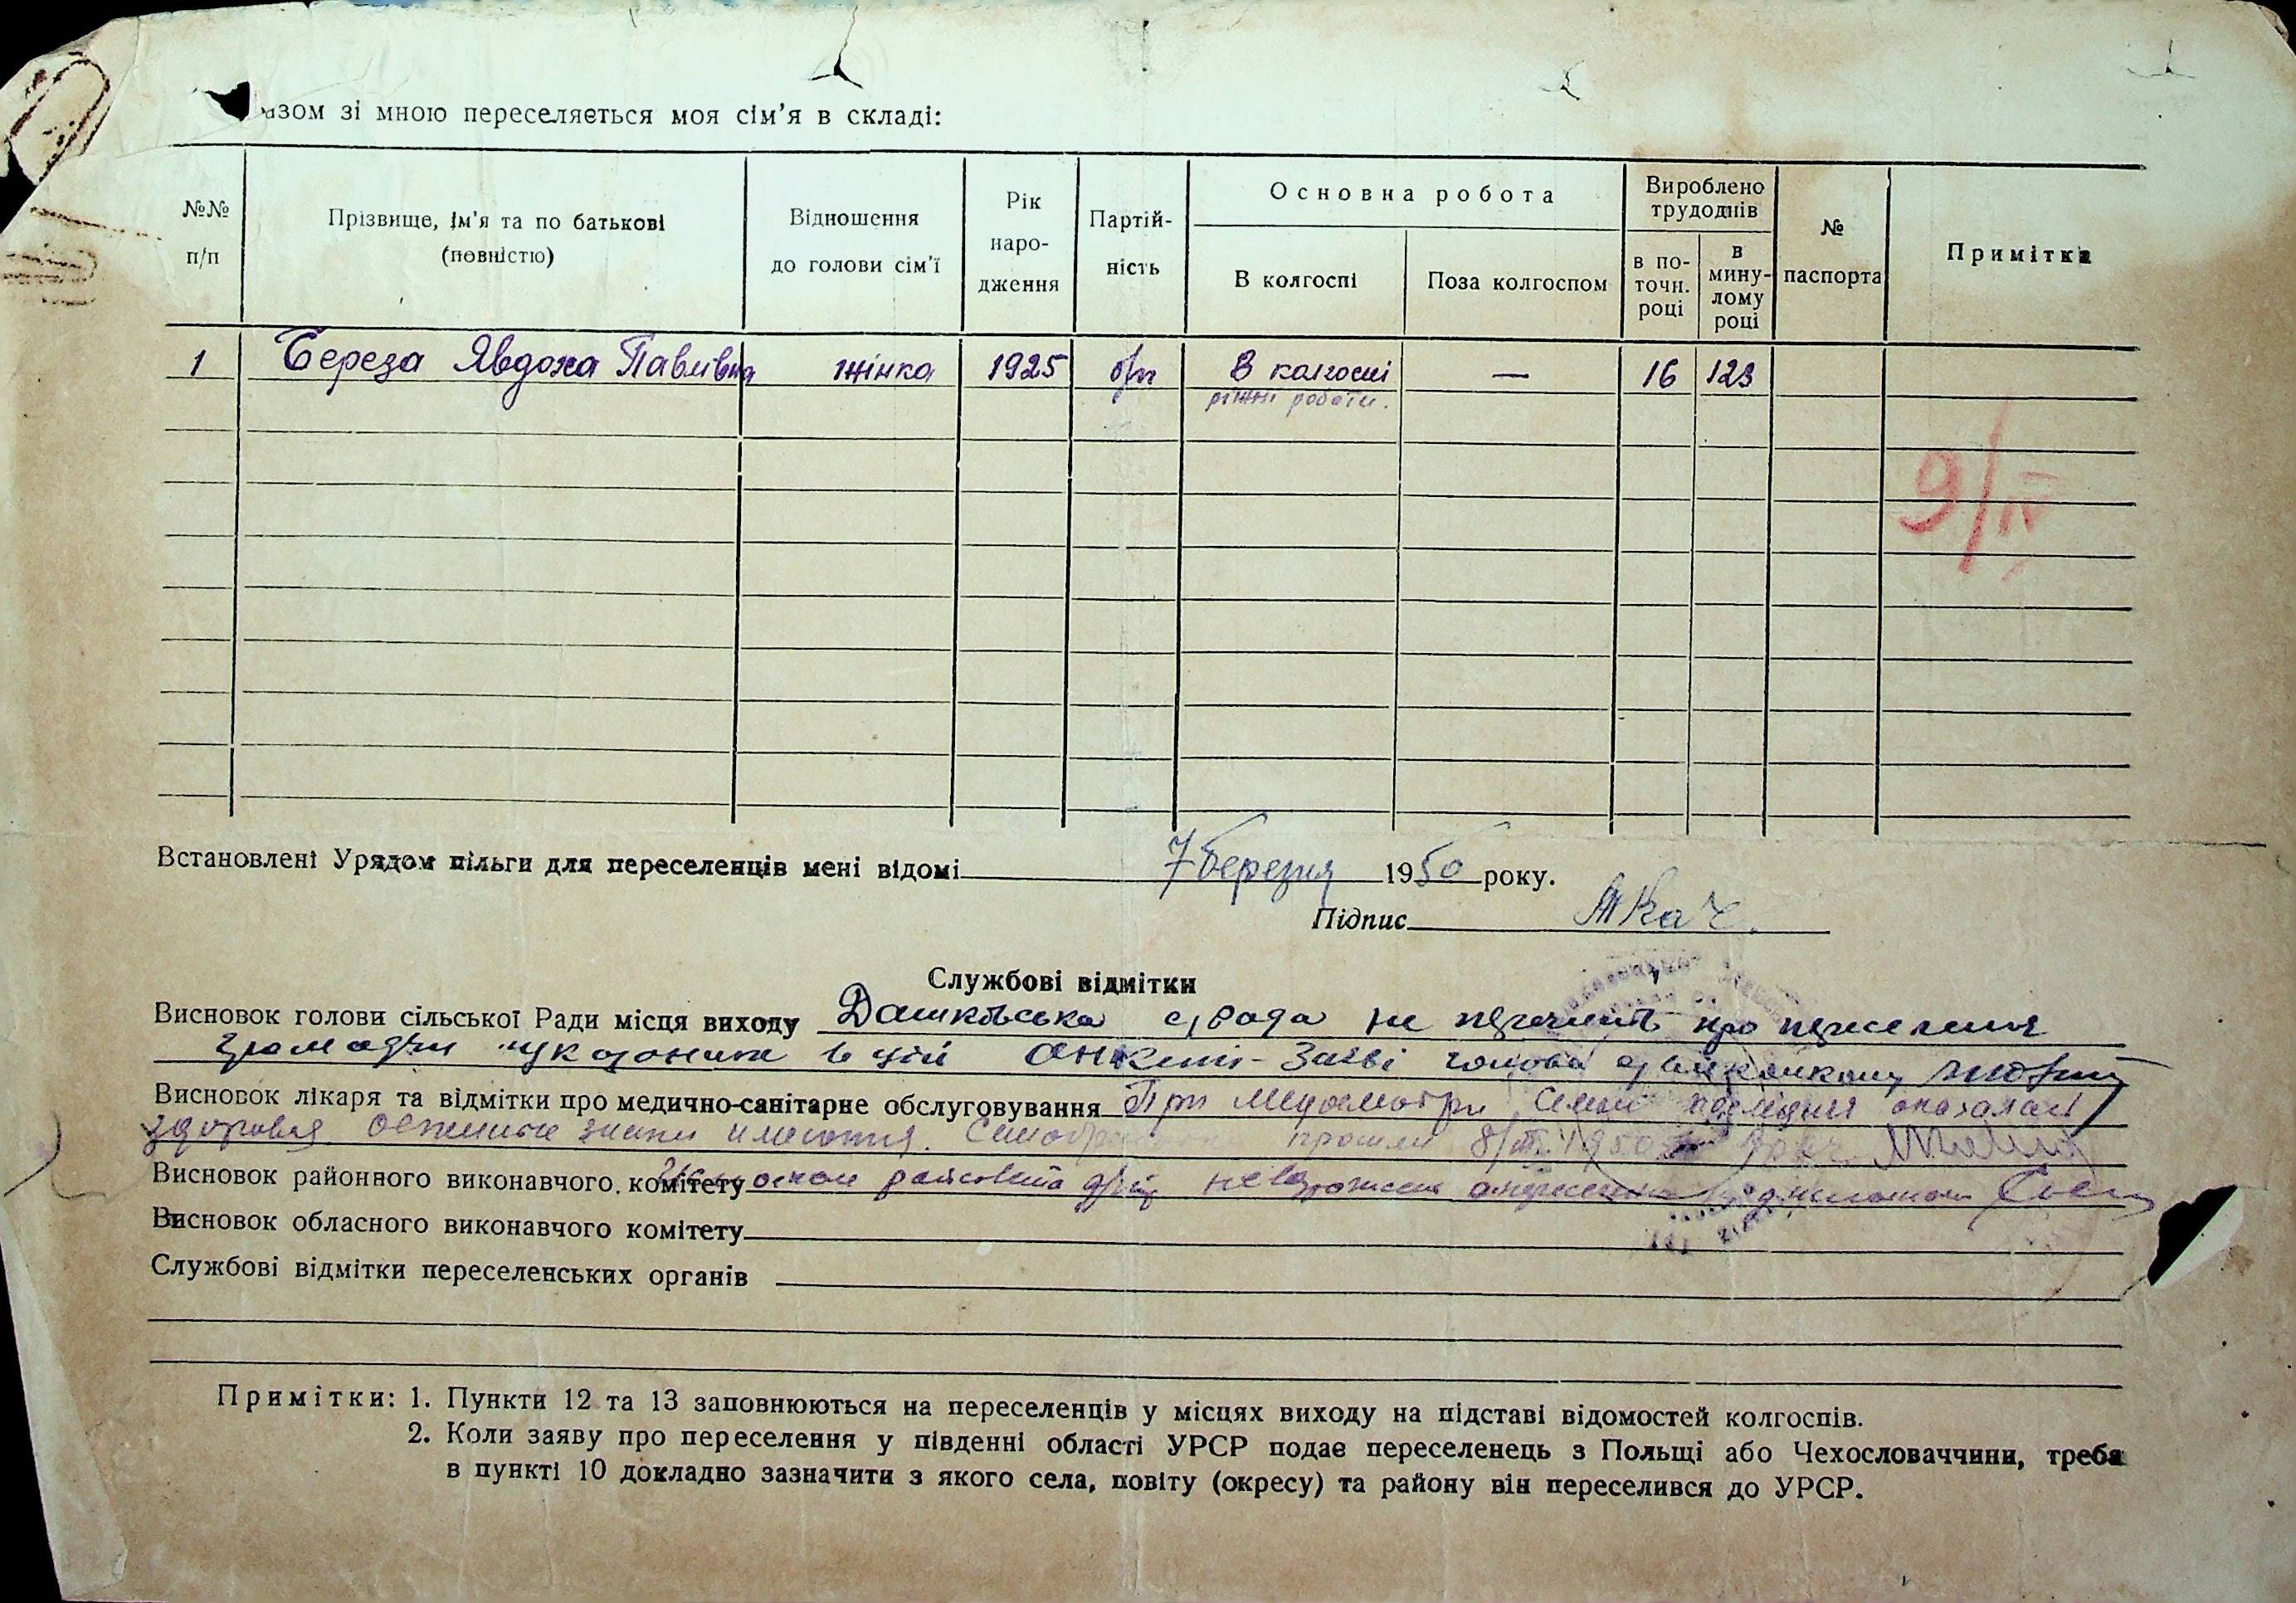 азом зі мною переселяється моя сім'я в складі:
№№ п/п
Прізвище, ім'я та по батькові (повністю)
Відношення до голови сім'ї
Рік наро-дження
Партій-ність
Основна робота
В колгоспі
Поза колгоспом
Вироблено трудоднів
в по-точн. році
в мину-лому році
№ паспорта
Примітка
1 Береза Явдоха Павлівна жінка 1925 б/п В колгоспі — 16 123
ріжні роботи.
9/IV
Встановлені Урядом пільги для переселенців мені відомі 7 березня 1950 року.
Підпис Ткач.
Службові відмітки
Висновок голови сільської Ради місця виходу Дашківська с/рада не перечить про переселення
громадян в цій Анкеті-Заяві голова
Висновок лікаря та відмітки про медично-санітарне обслуговування При Медосмотри Семьи
здоровая. прошли 8/III.1950
Висновок районного виконавчого комітету
Висновок обласного виконавчого комітету
Службові відмітки переселенських органів
Примітки: 1. Пункти 12 та 13 заповнюються на переселенців у місцях виходу на підставі відомостей колгоспів.
2. Коли заяву про переселення у південні області УРСР подає переселенець з Польщі або Чехословаччини, треба
в пункті 10 докладно зазначити з якого села, повіту (окресу) та району він переселився до УРСР.